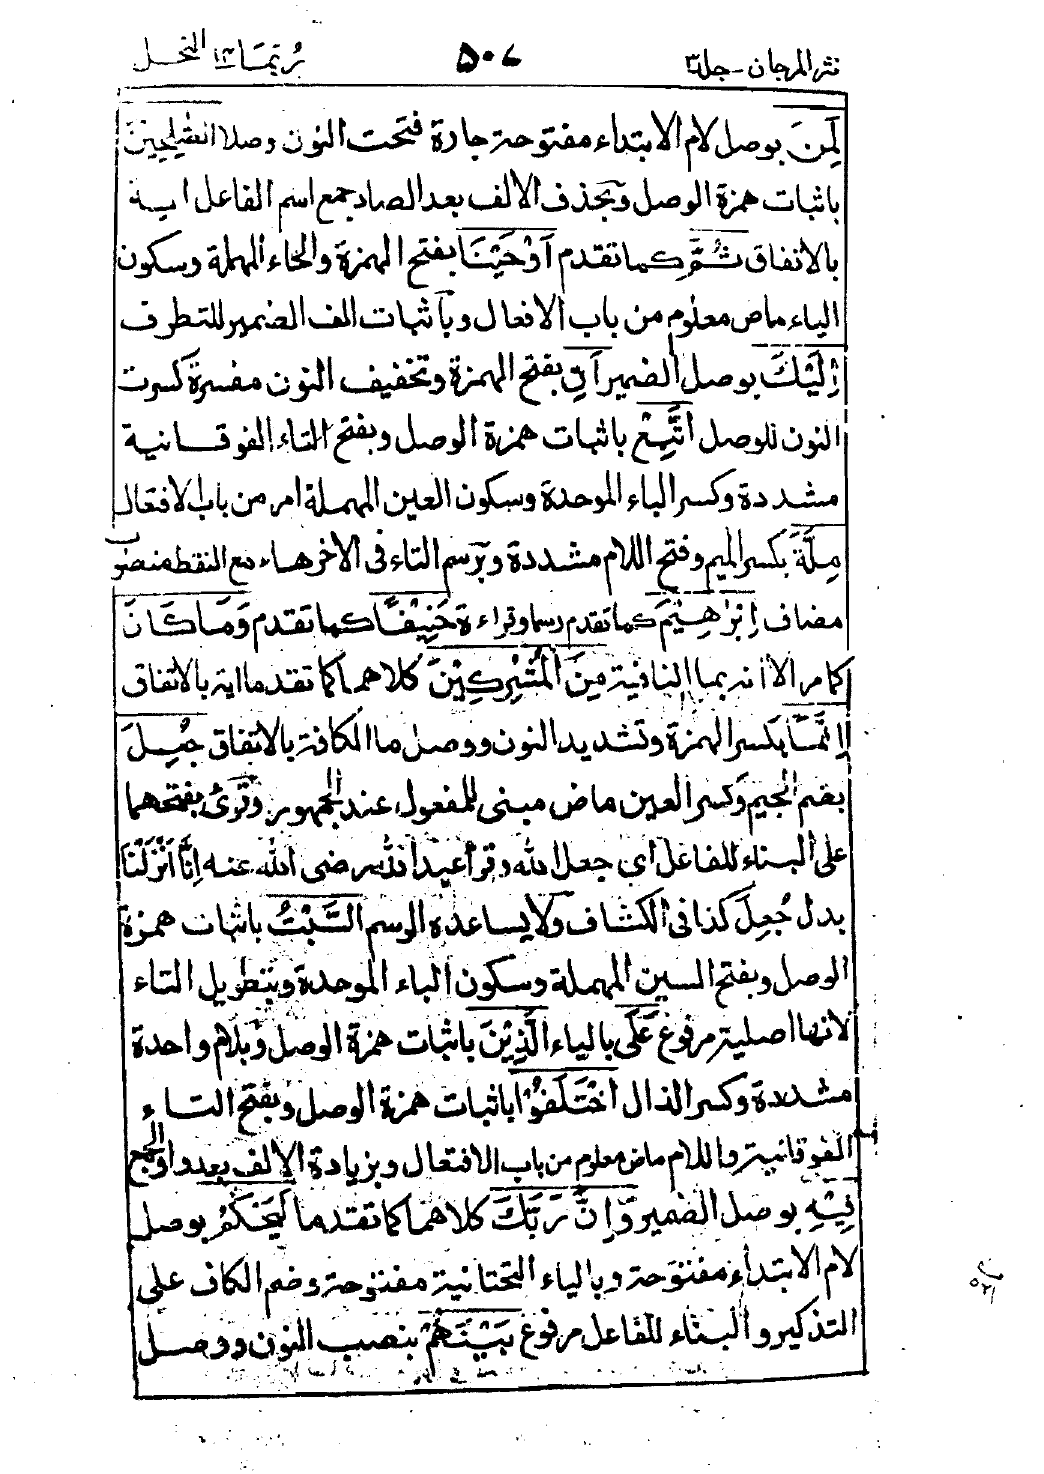 نثر المرجان - جلد ٣ ٥٠٧ ربما ١٤ النحل
لَمِنَ بوصل لام الابتداء مفتوحة جارة فتحت النون وصلا الصّٰلِحِيْنَ
باثبات همزة الوصل وبحذف الالف بعد الصاد جمع اسم الفاعل اية
بالاتفاق ثُمَّ كما تقدم اَوْحَيْنَا بفتح الهمزة والحاء المهملة وسكون
الياء ماض معلوم من باب الافعال وباثبات الف الضمير للتطرف
اِلَيْكَ بوصل الضمير اَنِ بفتح الهمزة وتخفيف النون مفسرة كسرت
النون للوصل اتَّبِعْ باثبات همزة الوصل وبفتح التاء الفوقانية
مشددة وكسر الباء الموحدة وسكون العين المهملة امر من باب الافتعال
مِلَّةَ بكسر الميم وفتح اللام مشددة وبرسم التاء فى الاخر هاء مع النقط منصوب
مضاف اِبْرٰهِيْمَ كما تقدم رسما وقراءة حَنِيْفًا كما تقدم وَمَا كَانَ
كما مر الا انه بما النافية مِنَ الْمُشْرِكِيْنَ كلاهما كما تقدما اية بالاتفاق
اِنَّمَا بكسر الهمزة وتشديد النون ووصل ما الكافة بالاتفاق جُعِلَ
بضم الجيم وكسر العين ماض مبنى للمفعول عند الجمهور وقرئ بفتحهما
على البناء للفاعل اى جعل الله وقرأ عبد الله رضى الله عنه اِنَّا اَنْزَلْنَا
بدل جُعِلَ كذا فى الكشاف ولا يساعده الرسم السَّبْتُ باثبات همزة
الوصل وبفتح السين المهملة وسكون الباء الموحدة وبتطويل التاء
لانها اصلية مرفوع عَلَى بالياء الَّذِيْنَ باثبات همزة الوصل وبلام واحدة
مشددة وكسر الذال اخْتَلَفُوْا باثبات همزة الوصل وبفتح التاء
الفوقانية واللام ماض معلوم من باب الافتعال وبزيادة الالف بعد واو الجمع
فِيْهِ بوصل الضمير وَاِنَّ رَبَّكَ كلاهما كما تقدما لَيَحْكُمُ بوصل
لام الابتداء مفتوحة وبالياء التحتانية مفتوحة وضم الكاف على
التذكير والبناء للفاعل مرفوع بَيْنَهُمْ بنصب النون ووصل